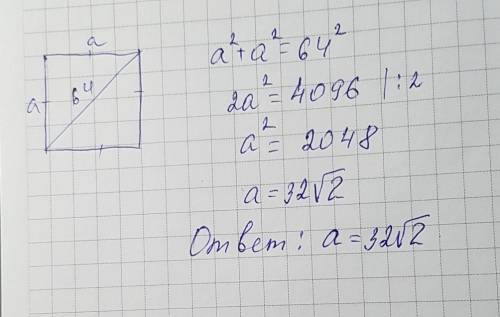 a
a
64
a² + a² = 64²
2a² = 4096 | : 2
a² = 2048
a = 32√2
Ответ: a = 32√2